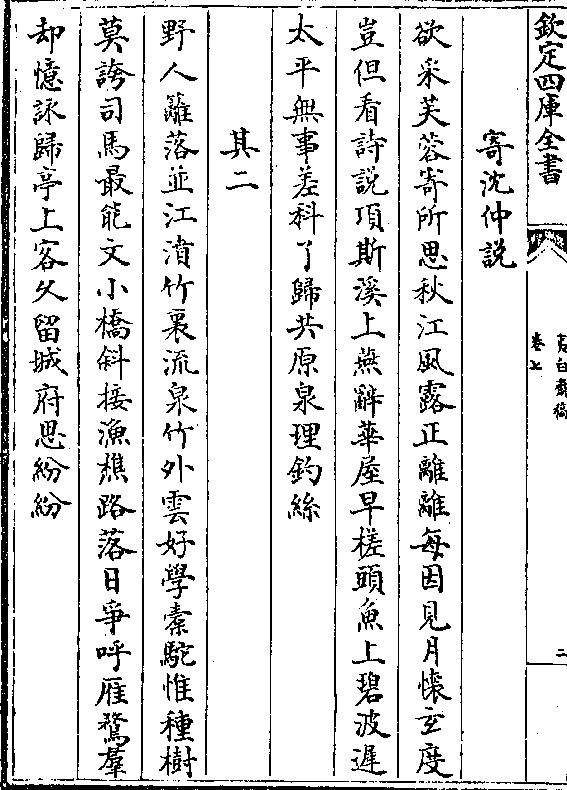 欽定四庫全書
夷白齋稿
卷七
二
寄沈仲説
欲采芙蓉寄所思秋江風露正離離每因見月懷玄度
豈但看詩説項斯溪上燕辭華屋早槎頭魚上碧波遲
太平無事差科了歸共原泉理釣絲
其二
野人籬落並江濆竹裏流泉竹外雲好學橐駝惟種樹
莫誇司馬最能文小橋斜接漁樵路落日爭呼雁鶩羣
却憶詠歸亭上客久留城府思紛紛